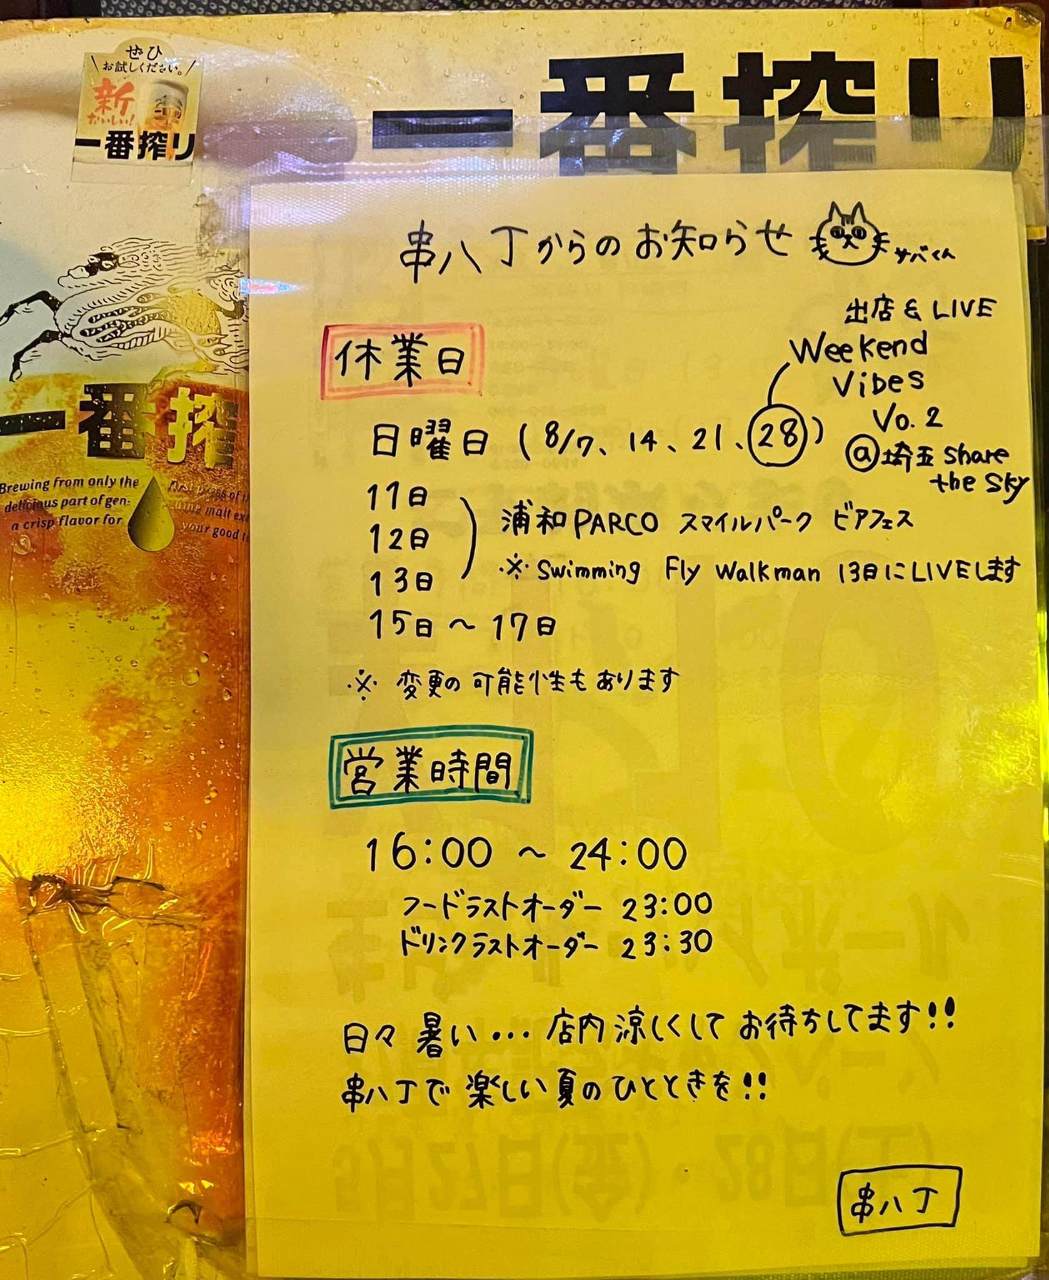 ぜひ
お試しください。
新
おいしい!
一番搾り
一番搾り
一番搾
Brewing from only the
delicious part of gen-
a crisp flavor for
your good
串八丁からのお知らせ
サバくん
休業日
出店 & LIVE
Weekend
Vibes
Vo.2
@埼玉 Share
the Sky
日曜日 (8/7、14、21、28)
11日
12日
13日
浦和PARCO スマイルパーク ビアフェス
※ Swimming Fly Walkman 13日にLIVEします
15日 〜 17日
※ 変更の可能性もあります
営業時間
16:00 〜 24:00
フードラストオーダー 23:00
ドリンクラストオーダー 23:30
日々 暑い... 店内 涼しくして お待ちしてます!!
串八丁で 楽しい 夏の ひとときを!!
串八丁